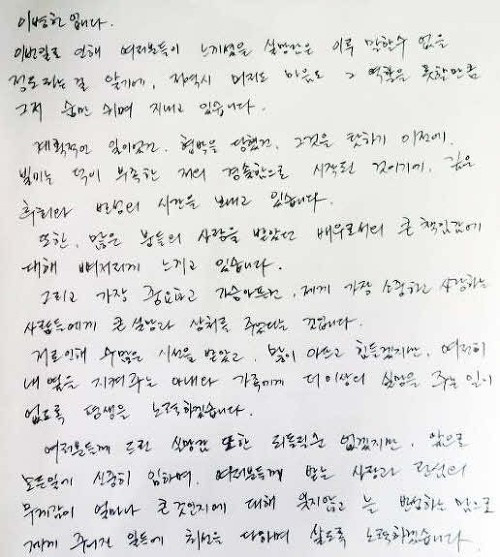 이병헌입니다.
이번일로 인해 여러분들이 느끼셨을 실망감은 이루 말할수 없을
정도라는걸 알기에, 저역시 머리도 마음도 그 역할을 못할만큼
그저 숨만 쉬며 지내고 있습니다.
계획적인 일이었건, 협박을 당했건, 그것을 탓하기 이전에,
빌미는 덕이 부족한 저의 경솔함으로 시작된 것이기에, 깊은
후회와 반성의 시간을 보내고 있습니다.
또한, 많은 분들의 사랑을 받았던 배우로서의 큰 책임감에
대해 뼈저리게 느끼고 있습니다.
그리고 가장 중요하고 가슴아픈건, 제게 가장 소중하고 사랑하는
사람들에게 큰 실망과 상처를 주었다는 것입니다.
저로인해 수많은 시선을 받았고, 많이 아프고 힘들겠지만, 여전히
내 옆을 지켜주는 아내와 가족에게 더이상의 실망을 주는 일이
없도록 평생을 노력하겠습니다.
여러분들께 드린 실망감 또한 되돌릴순 없겠지만, 앞으로
모든일에 신중히 임하며, 여러분들께 받는 사랑과 관심의
무게감이 얼마나 큰 것인지에 대해 잊지않고 늘 반성하는 맘으로
제게 주어진 일들에 최선을 다하며 살도록 노력하겠습니다.